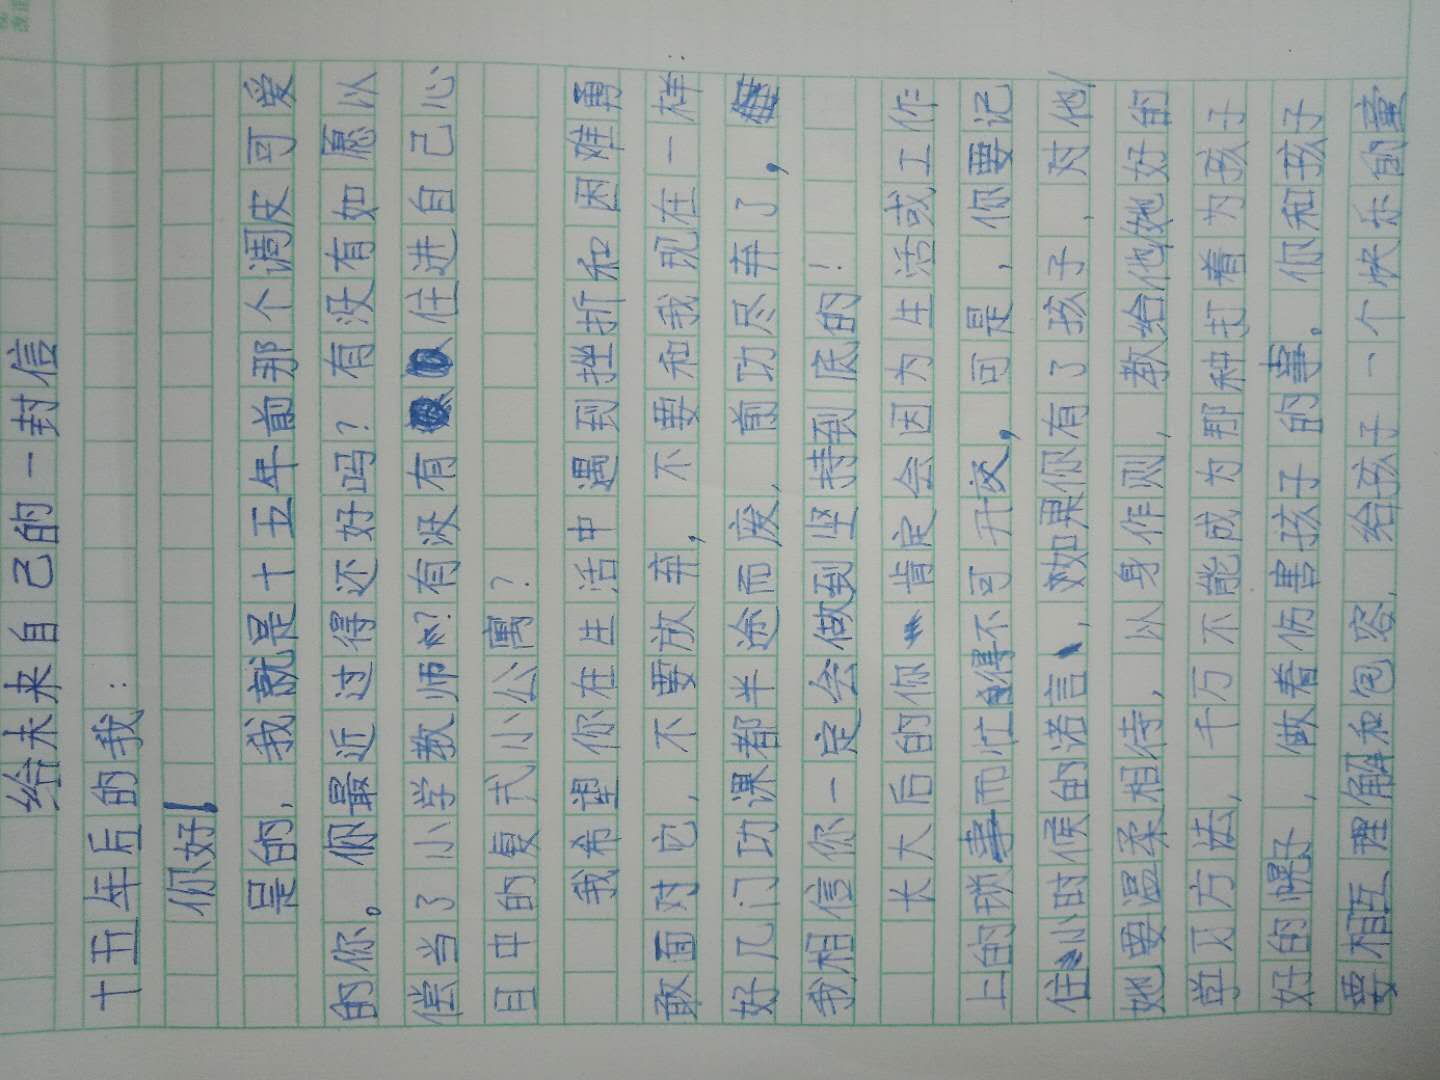 给未来自己的一封信
十五年后的我:
你好!
是的,我就是十五年前那个调皮可爱
的你。你最近过得还好吗?有没有如愿以
偿当了小学教师?有没有住进自己心
目中的复式小公寓?
我希望你在生活中遇到挫折和困难勇
敢面对它,不要放弃,不要和我现在一样
好几门功课都半途而废,前功尽弃了,
我相信你一定会做到坚持到底的!
长大后的你肯定会因为生活或工作
上的琐事而忙得不可开交,可是,你要记
住小时候的诺言,如果你有了孩子,对他/
她要温柔相待,以身作则,教给他她好的
学习方法,千万不能成为那种打着为孩子
好的幌子,做着伤害孩子的事。你和孩子
要相互理解和包容,给孩子一个快乐的童